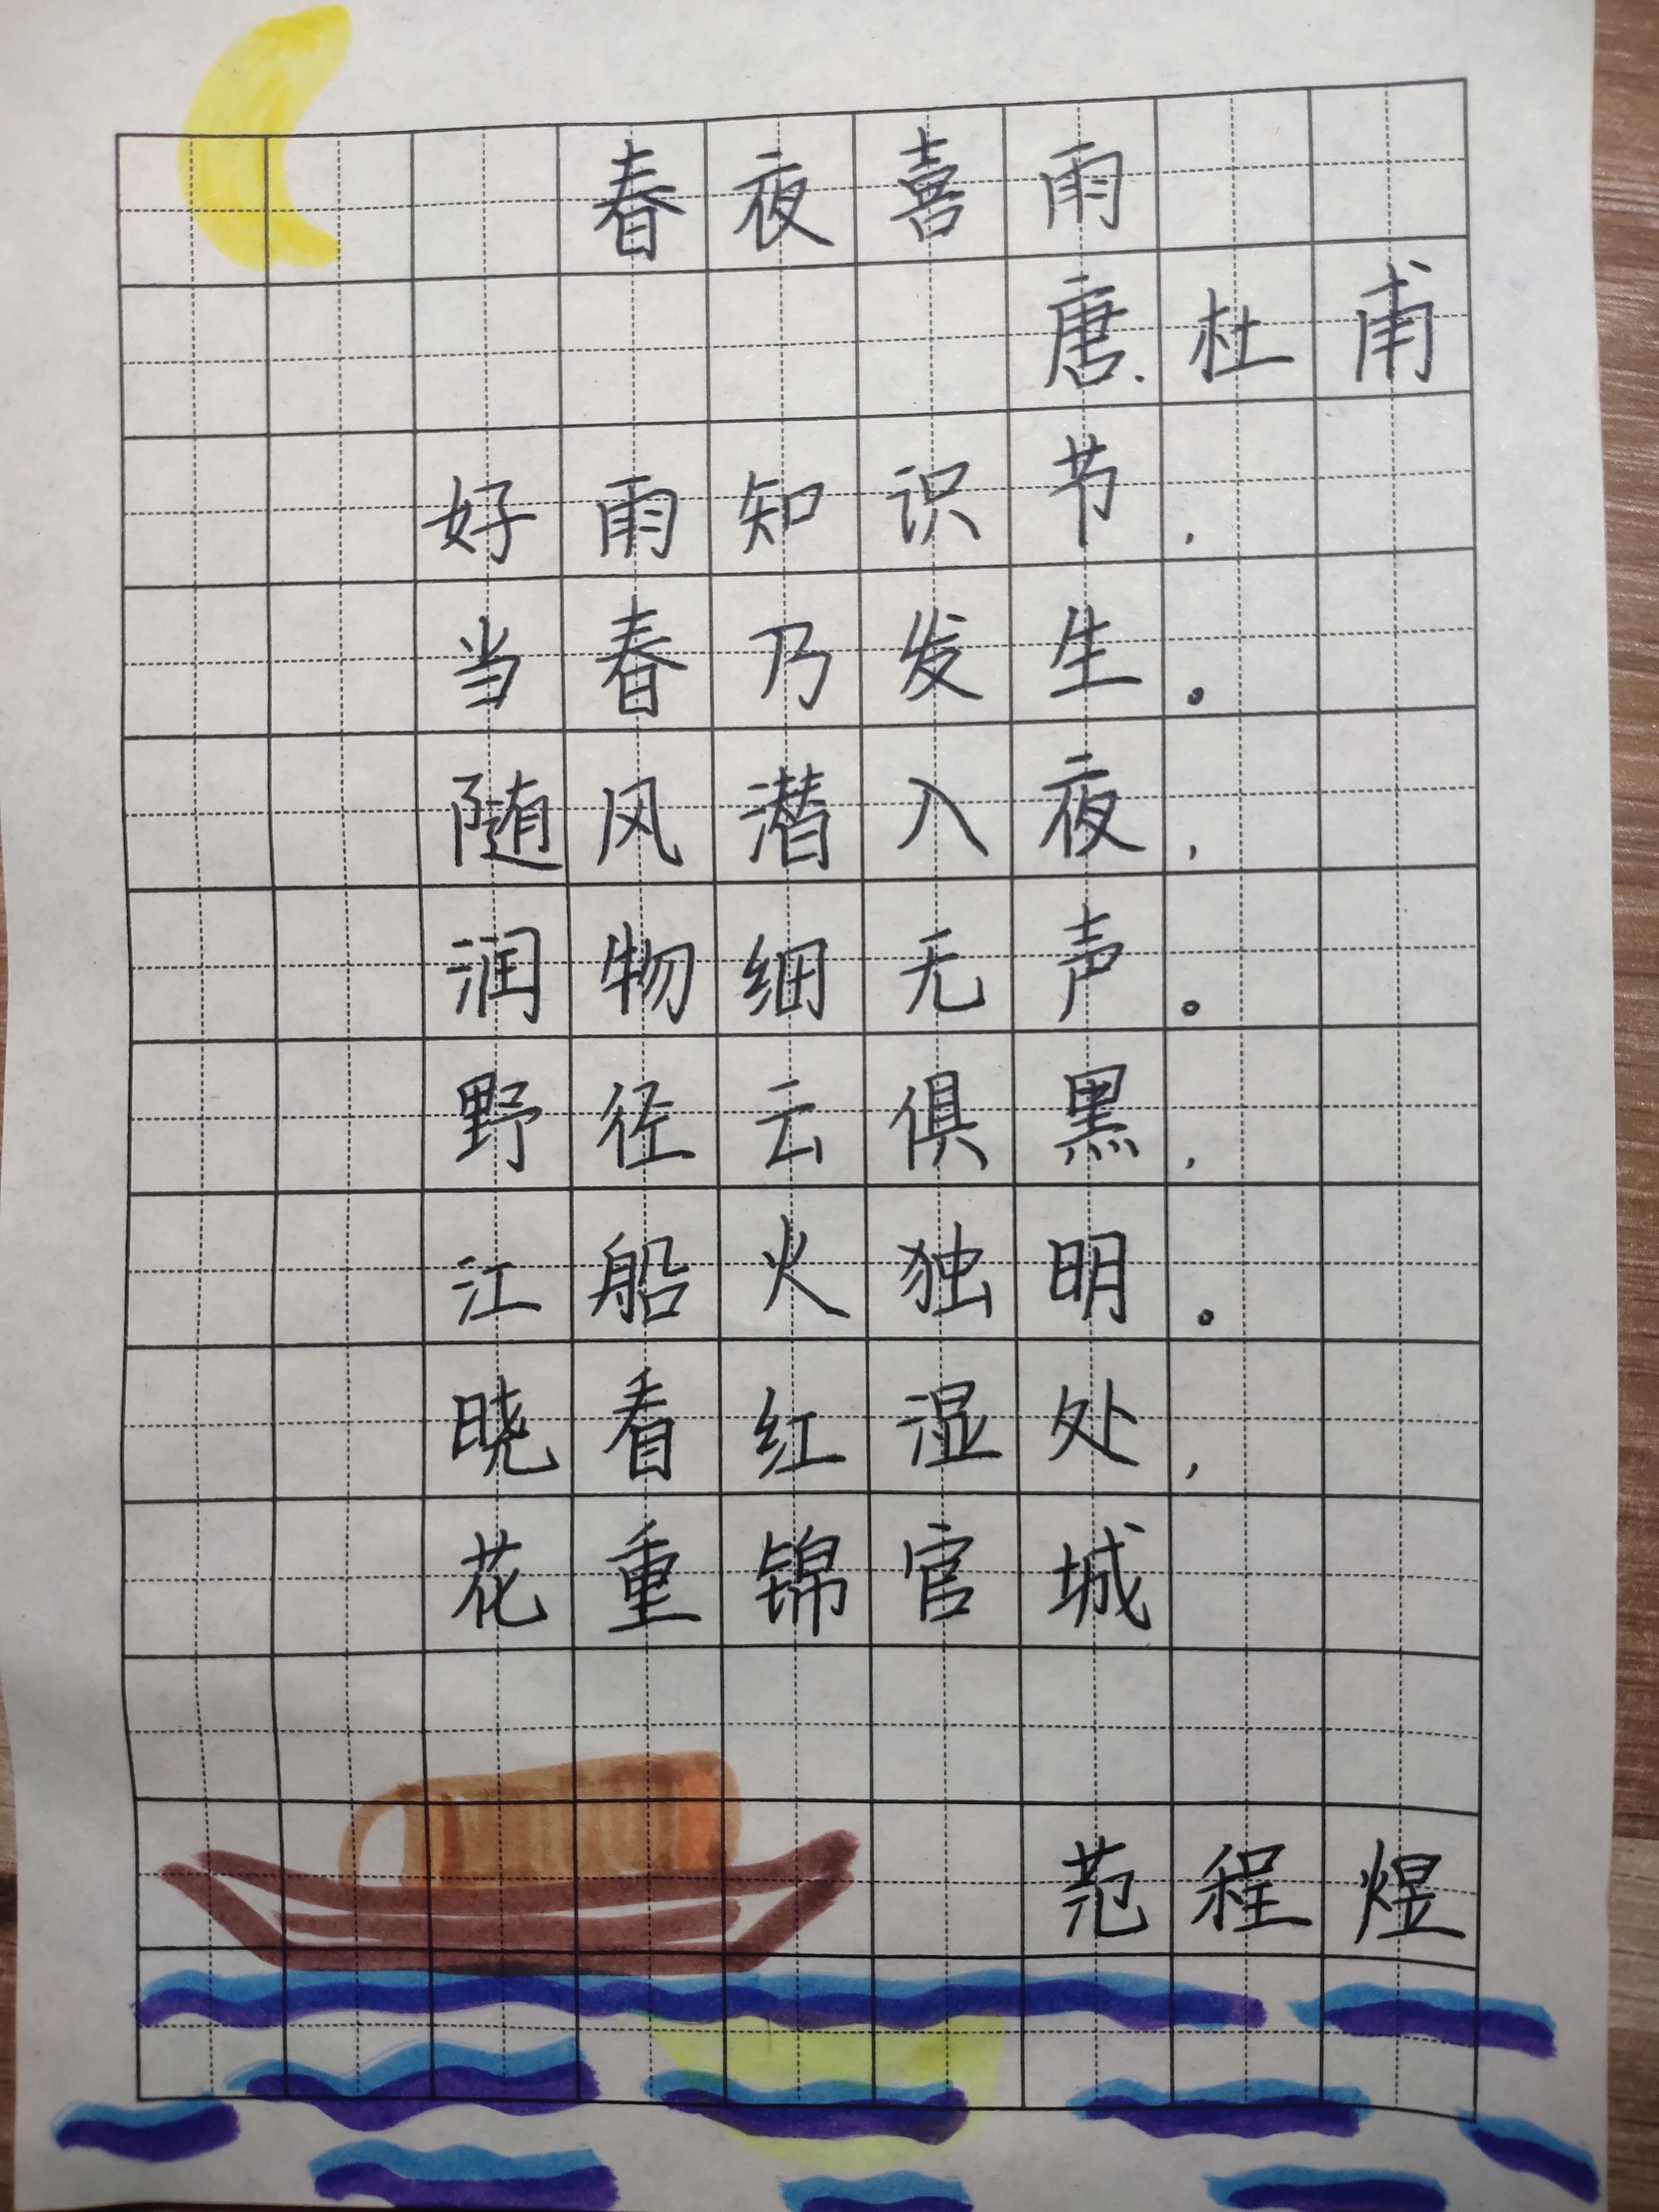 春夜喜雨
唐.杜甫
好雨知识节，
当春乃发生。
随风潜入夜，
润物细无声。
野径云俱黑，
江船火独明。
晓看红湿处，
花重锦官城
范程煜